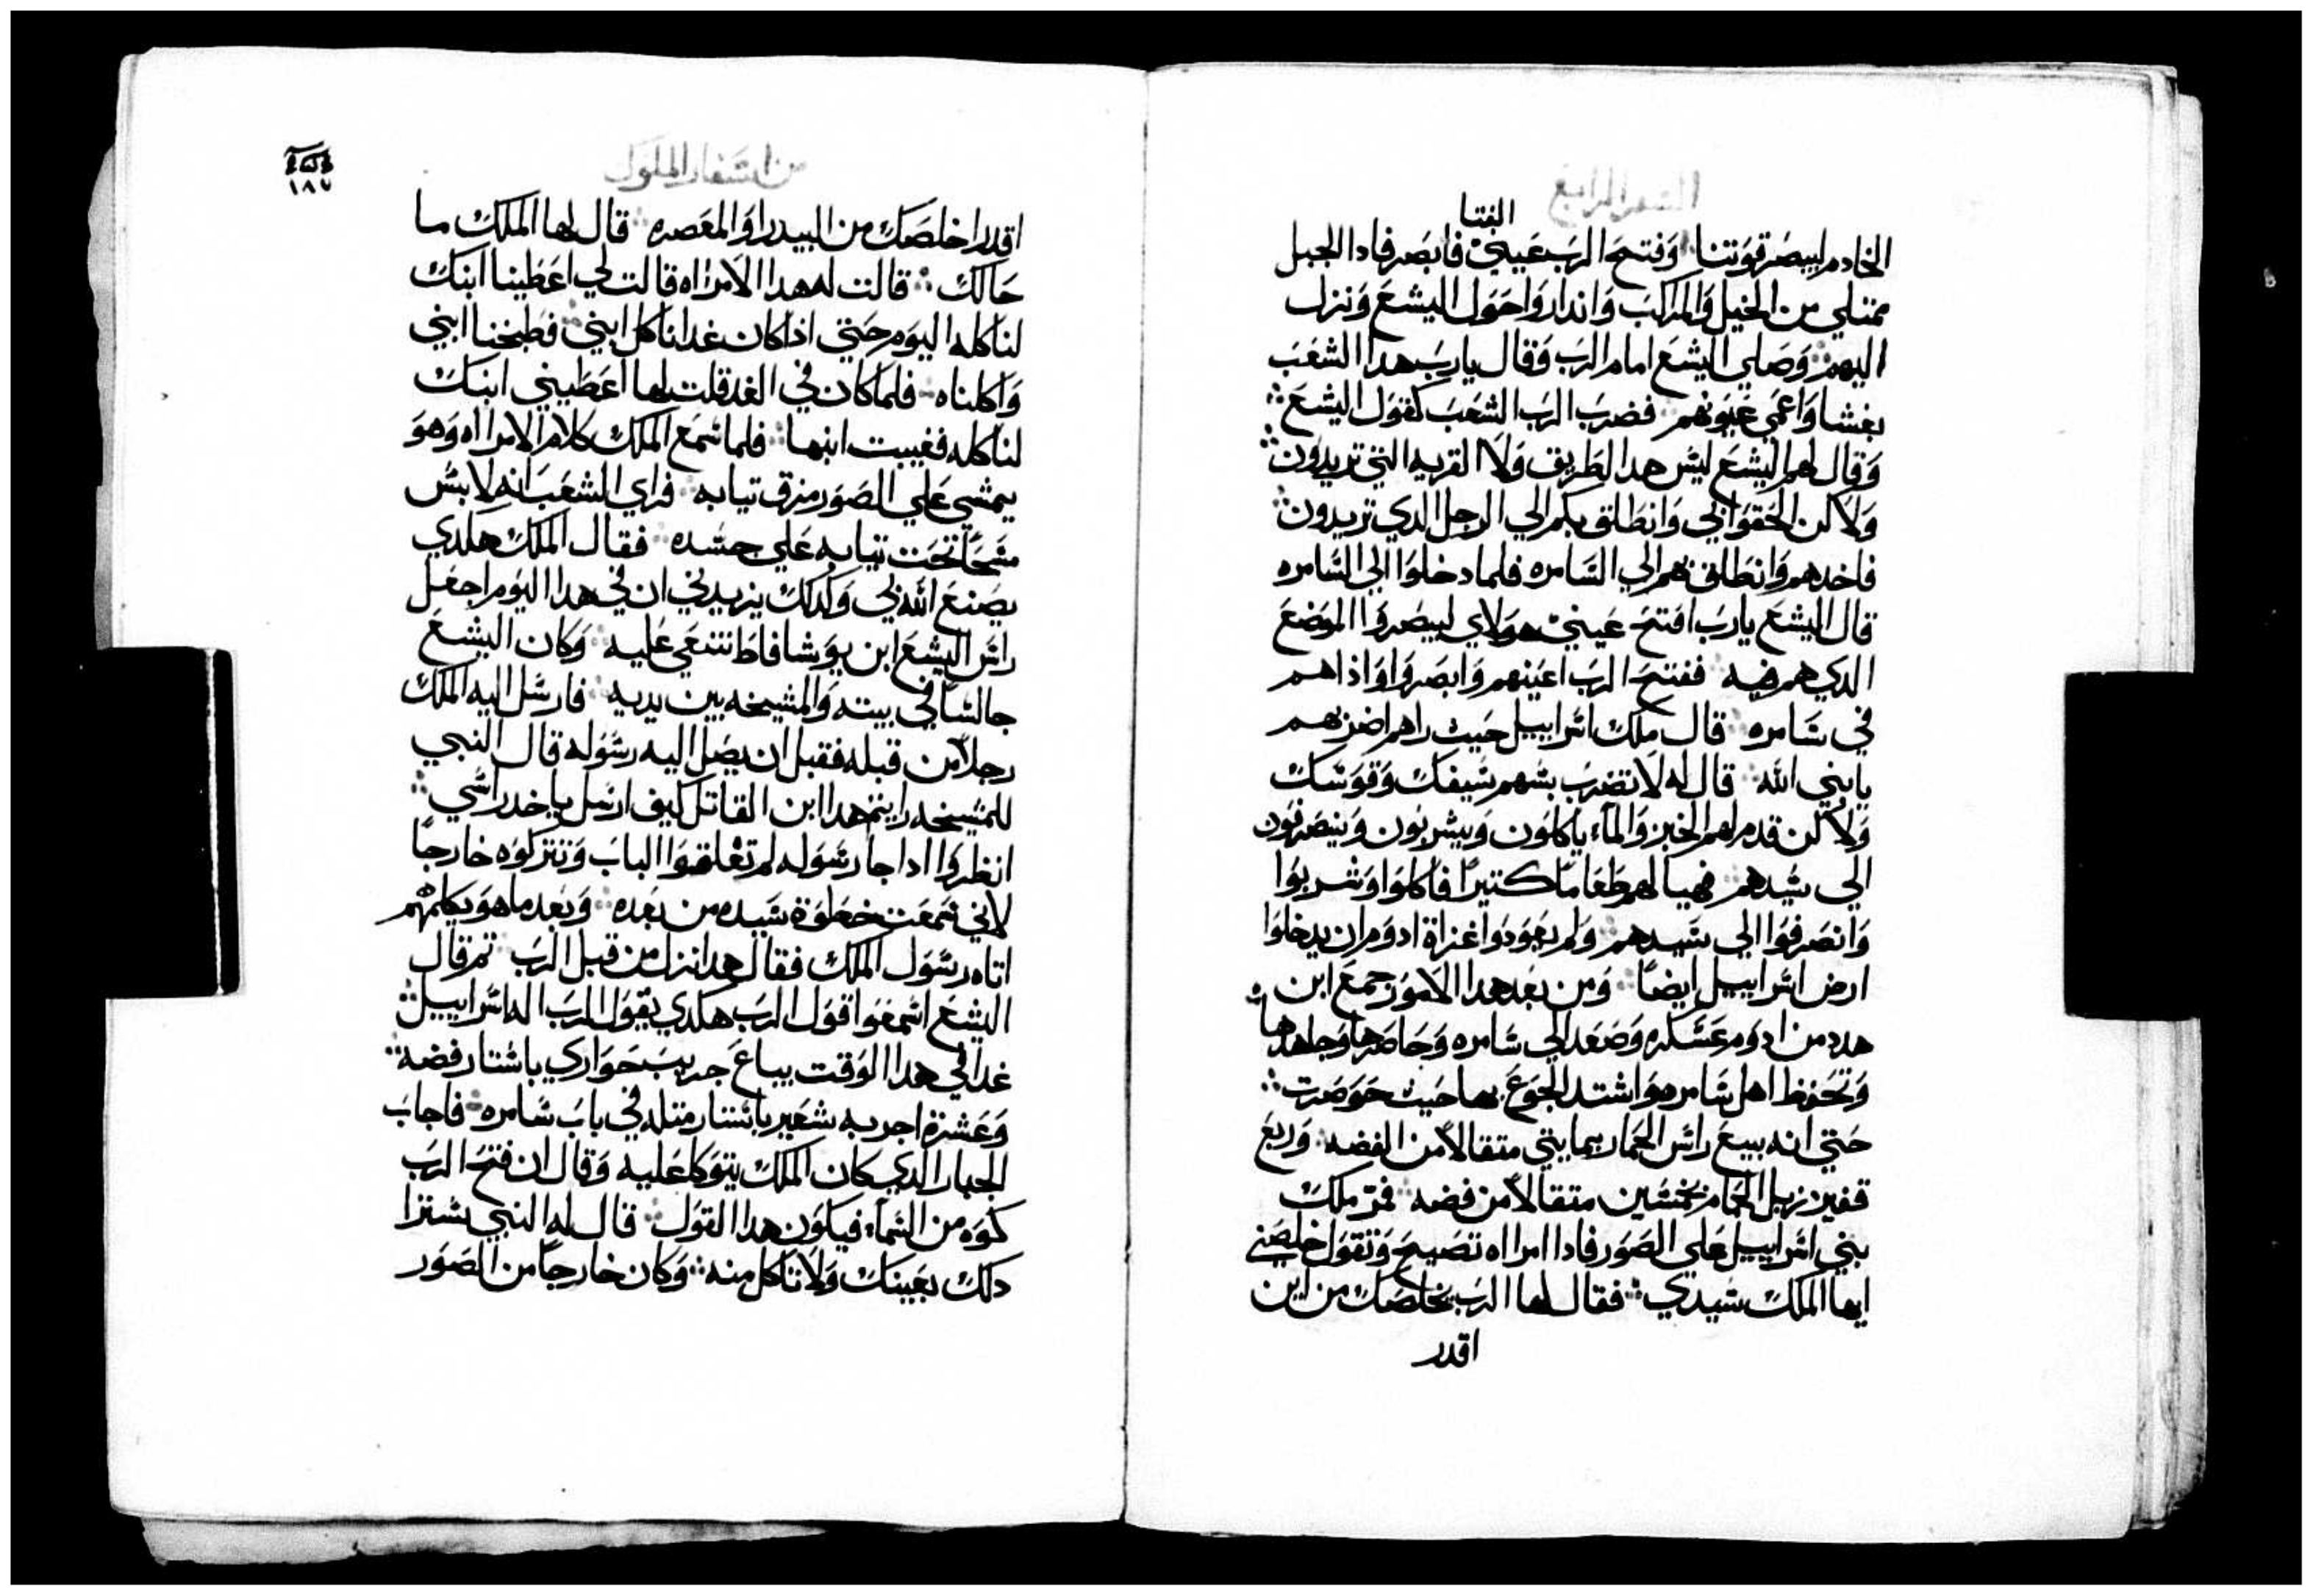 السفر الرابع
الفتا
الخادم ليبصر قوتنا وفتح الرب عيني فابصر فادا الجبل
ممتلي من الخيل والمراكب وانداروا حول اليشع ونزل
اليهم وصلي اليشع امام الرب وقال يارب هدا الشعب
بغشا واعمي عيونهم فضرب الرب الشعب كقول اليشع
وقال لهم اليشع ليس هدا الطريق ولا القريه التي تريدون
ولاكن الحقوا بي وانطلق بكم الي الرجل الدي تريدون
فاخدهم وانطلق بهم الي السامره فلما دخلوا الي السامره
قال اليشع يارب افتح عيني هولاي ليبصروا الموضع
الدي هم فيه ففتح الرب اعينهم وابصروا واذا هم
في سامره قال ملك اسراييل حيث راهم اضربهم
يابني الله قال له لا تضرب بسهم سيفك وقوسك
ولاكن قدم لهم الخبز والماء ياكلون ويشربون وينصرفون
الي سيدهم فهيا لهم طعاما كتيرا فاكلوا وشربوا
وانصرفوا الي سيدهم ولم يعودوا غزاة ادوم ان يدخلوا
ارض اسراييل ايضا ومن بعد هدا الامور جمع ابن
هدد من ادوم عسكره وصعد الي سامره وحاصرها وجاهدها
وتحفظ اهل سامره واشتد الجوع بها حيث حوصرت
حتي انه بيع راس الحمار بمايتي متقالا من الفضه وربع
قفيز زبل الحمام بخمسين متقالا من فضه فمر ملك
بني اسراييل علي الصور فادا امراه تصيح وتقول خلصني
ايها الملك سيدي فقال لها الرب يخلصك من اين
اقدر
من اسفار الملوك
١٨٧
اقدر اخلصك من البيدر او المعصره قال لها الملك ما
حالك قالت له هدا الامراه قالت لي اعطينا ابنك
لناكله اليوم حتي اذا كان غدا ناكل ابني فطبخنا ابني
واكلناه فلما كان في الغد قلت لها اعطيني ابنك
لناكله فغيبت ابنها فلما سمع الملك كلام الامراه وهو
يمشي علي الصور مزق تيابه فراي الشعب انه لابس
مسحا تحت تيابه علي جسده فقال الملك هكدي
يصنع الله بي وكدلك يزيدني ان في هدا اليوم اجعل
راس اليشع ابن يوشافاط تبقي عليه وكان اليشع
جالسا في بيته والمشيخه بين يديه فارسل اليه الملك
رجلا من قبله فقبل ان يصل اليه رسوله قال النبي
للمشيخه رايتم هدا ابن القاتل كيف ارسل ياخد راسي
انظروا ادا جا رسوله لم تغلقوا الباب وتتركوه خارجا
لاني سمعت خطوة سيده من بعده وبعد ما هو يكلمهم
اتاه رسول الملك فقال هدا نزل من قبل الرب تم قال
اليشع اسمعوا قول الرب هكدي يقول الرب اله اسراييل
غدا في هدا الوقت يباع جريب حواري باستار فضه
وعشرة اجربه شعير باستار متله في باب سامره فاجاب
الجبار الدي كان الملك يتوكا عليه وقال ان فتح الرب
كوه من السماء فيكون هدا القول قال له النبي ستزا
دلك بعينك ولا تاكل منه وكان خارجا من الصور